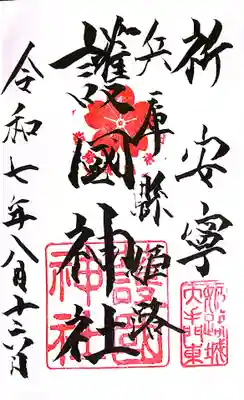 祈 安寧
兵庫縣姫路
護國神社
令和七年八月十六日
護國
神社
姫路城
大手門東